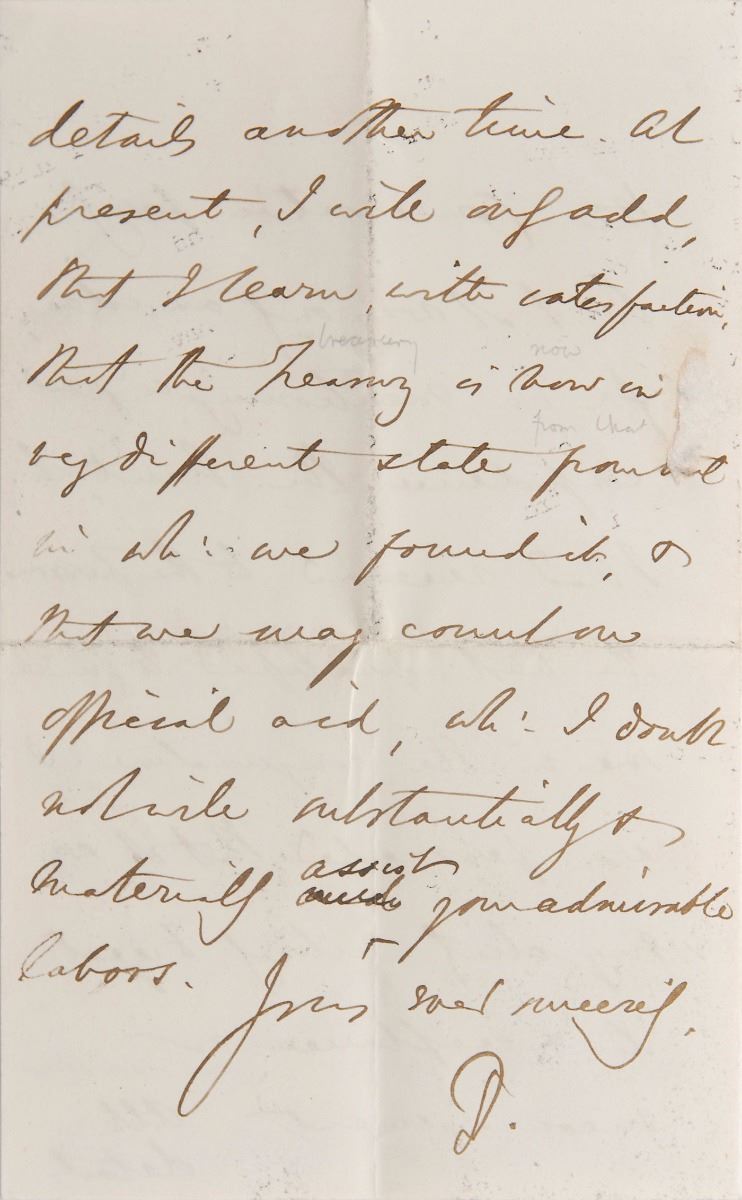 details another time. At
present, I will only add,
that I learn, with satisfaction,
treasury now
that the Treasury is now in
from that
very different state from that
in wh: we found it, &
that we may count on
official aid, wh: I doubt
not will substantially &
assist
materially your admirable
labors.
Yours sincerely,
D.